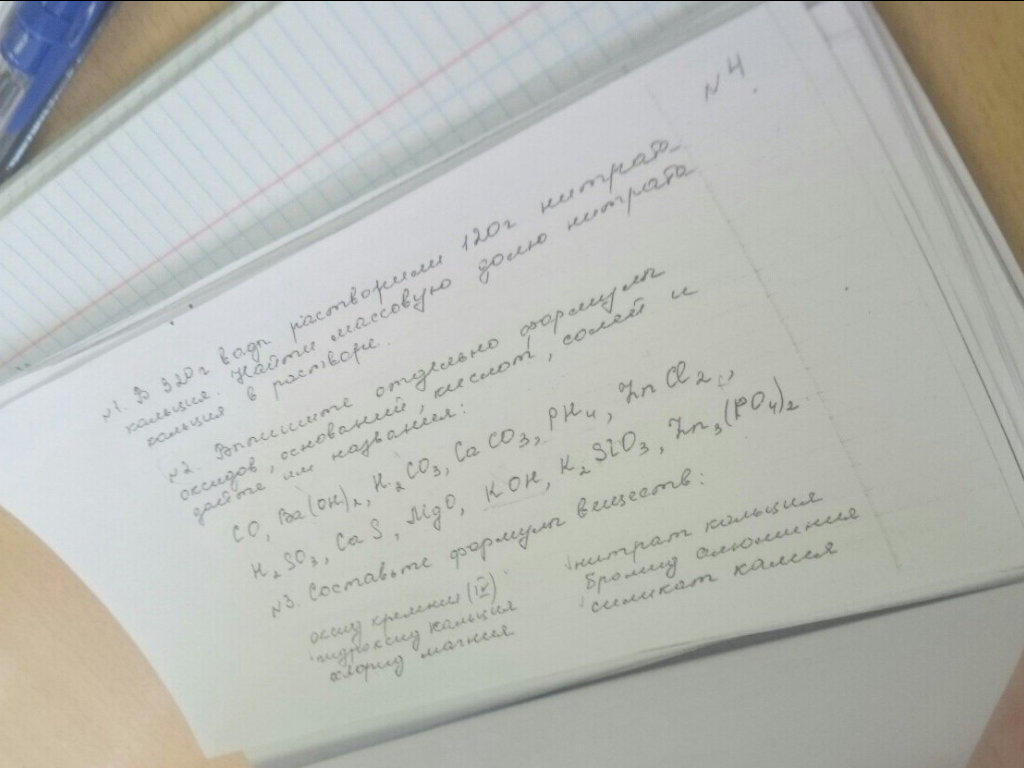 N4.
№1. В 320г воды растворили 120г нитрат-
кальция. Найти массовую долю нитрата
кальция в растворе.
№2. Выпишите отдельно формулы
оксидов, оснований, кислот, солей и
дайте им названия:
CO, Ba(OH)₂, H₂CO₃, CaCO₃, PH₄, ZnCl₂,
H₂SO₃, CaS, MgO, KOH, K₂SiO₃, Zn₃(PO₄)₂
№3. Составьте формулы веществ:
оксид кремния (IV) нитрат кальция
гидроксид кальция бромид алюминия
хлорид магния силикат калия